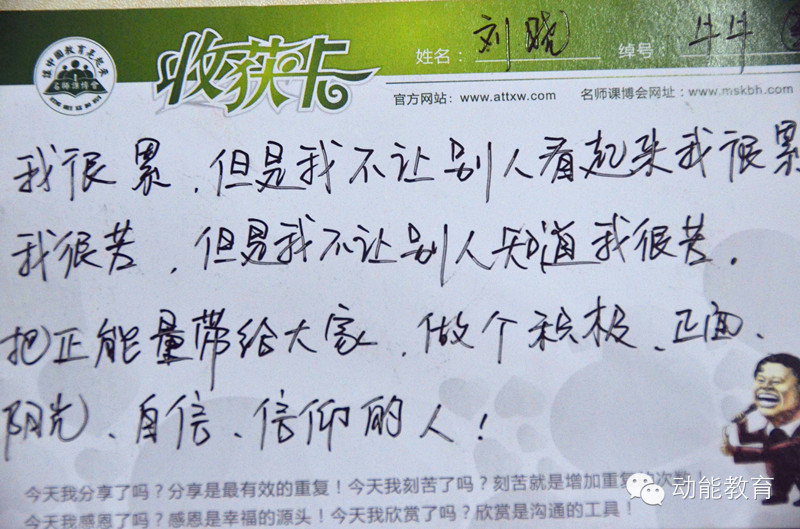 收获卡
姓名：刘晓 绰号：牛牛
官方网站：www.attxw.com 名师课博会网址：www.mskbh.com
名师课博会
我很累，但是我不让别人看起来我很累
我很苦，但是我不让别人知道我很苦。
把正能量带给大家，做个积极、正面、
阳光、自信、信仰的人！
今天我分享了吗？分享是最有效的重复！今天我刻苦了吗？刻苦就是增加重复的次数！
今天我感恩了吗？感恩是幸福的源头！今天我欣赏了吗？欣赏是沟通的工具！
动能教育